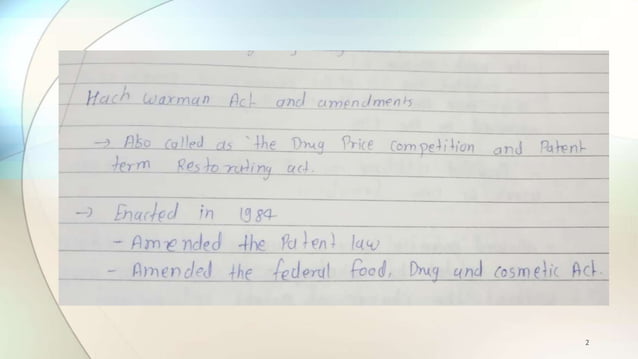 Hach waxman Act and amendments
→ Also called as 'the Drug Price Competition and Patent
term Restorating act.
→ Enacted in 1984
- Amended the Patent law
- Amended the federal food, Drug and cosmetic Act.
2